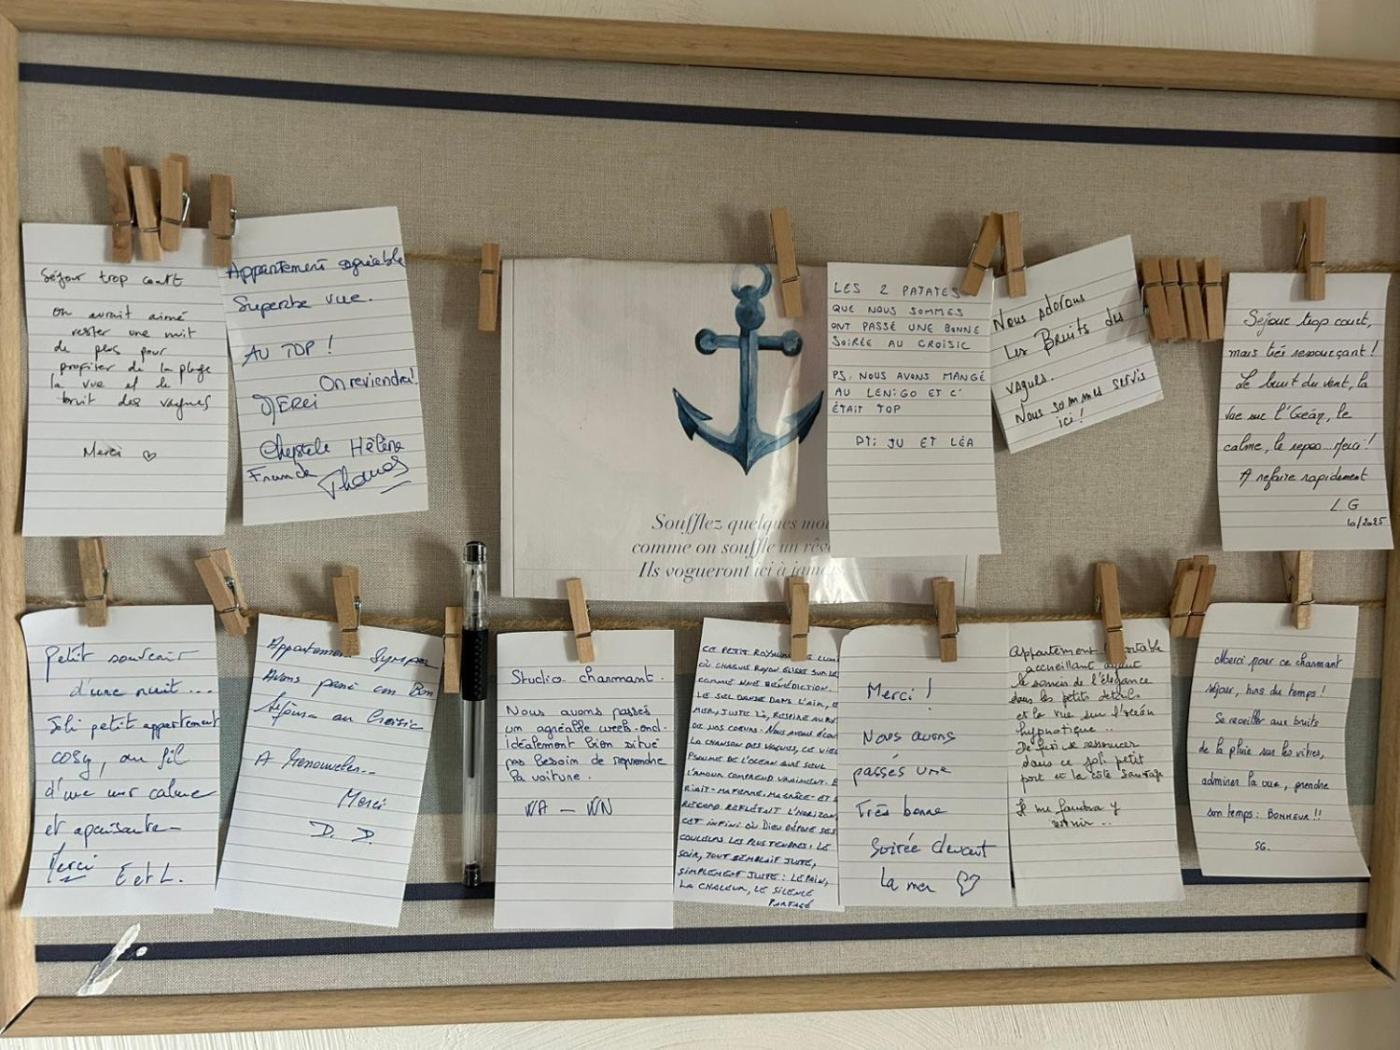 Séjour trop court
on aurait aimé
rester une nuit
de plus pour
profiter de la plage
la vue et le
bruit des vagues
Merci ♡
Appartement agréable
Superbe vue.
AU TOP !
On reviendra!
MERCi
Hélène
Franck Thomas
Soufflez quelques mo
comme on souffle un rêve
Ils vogueront ici à jamais
LES 2 PATATES
QUE NOUS SOMMES
ONT PASSÉ UNE BONNE
SOIRÉE AU CROISIC
PS: NOUS AVONS MANGÉ
AU LENIGO ET C'
ÉTAIT TOP
JU ET LÉA
Nous adorons
Les Bruits des
vagues.
Nous sommes servis
ici !
Séjour trop court,
mais très ressourçant !
Le bruit du vent, la
vue sur l'Océan, le
calme, le repos... Merci !
A refaire rapidement
L.G
10/2025
Petit souvenir
d'une nuit...
Joli petit appartement
cosy, au fil
d'une mer calme
et apaisante
Merci E et L.
Appartement Sympa
Avons passé un Bon
Séjour au Croisic
A Renouveler...
Merci
D. D.
Studio charmant.
Nous avons passés
un agréable week-end.
Idéalement bien situé
pas besoin de reprendre
la voiture.
WA - WN
CE PETIT ROYAUME DE LUM
OÙ CHAQUE RAYON GLISSE SUR LE
COMME UNE BÉNÉDICTION.
LE SEL DANSE DANS L'AIR,
MER, JUSTE LÀ, RESPIRE AU RY
DE NOS COEURS. NOUS AVONS ÉCOU
LA CHANSON DES VAGUES, CE VIEUX
PSAUME DE L'OCÉAN QUE SEUL
L'AMOUR COMPREND VRAIMENT. E
RIAIT - MA FEMME, MA GRÂCE - ET
REGARD REFLÉTAIT L'HORIZON
CET INFINI OÙ DIEU DÉPOSE SES
COULEURS LES PLUS TENDRES. LE
SOIR, TOUT SEMBLAIT JUSTE,
SIMPLEMENT JUSTE : LE PAIN,
LA CHALEUR, LE SILENCE
PARTAGÉ
Merci !
Nous avons
passés une
Très bonne
Soirée devant
la mer ♡
Appartement
accueillant ayant
le soucis de l'élégance
dans les petits détails
et la vue sur l'océan
hypnotique...
se ressourcer
dans ce joli petit
port et la côte sauvage
Il me faudra y
venir...
Merci pour ce charmant
séjour, hors du temps !
Se réveiller aux bruits
de la pluie sur les vitres,
admirer la vue, prendre
son temps : BONHEUR !!
SG.